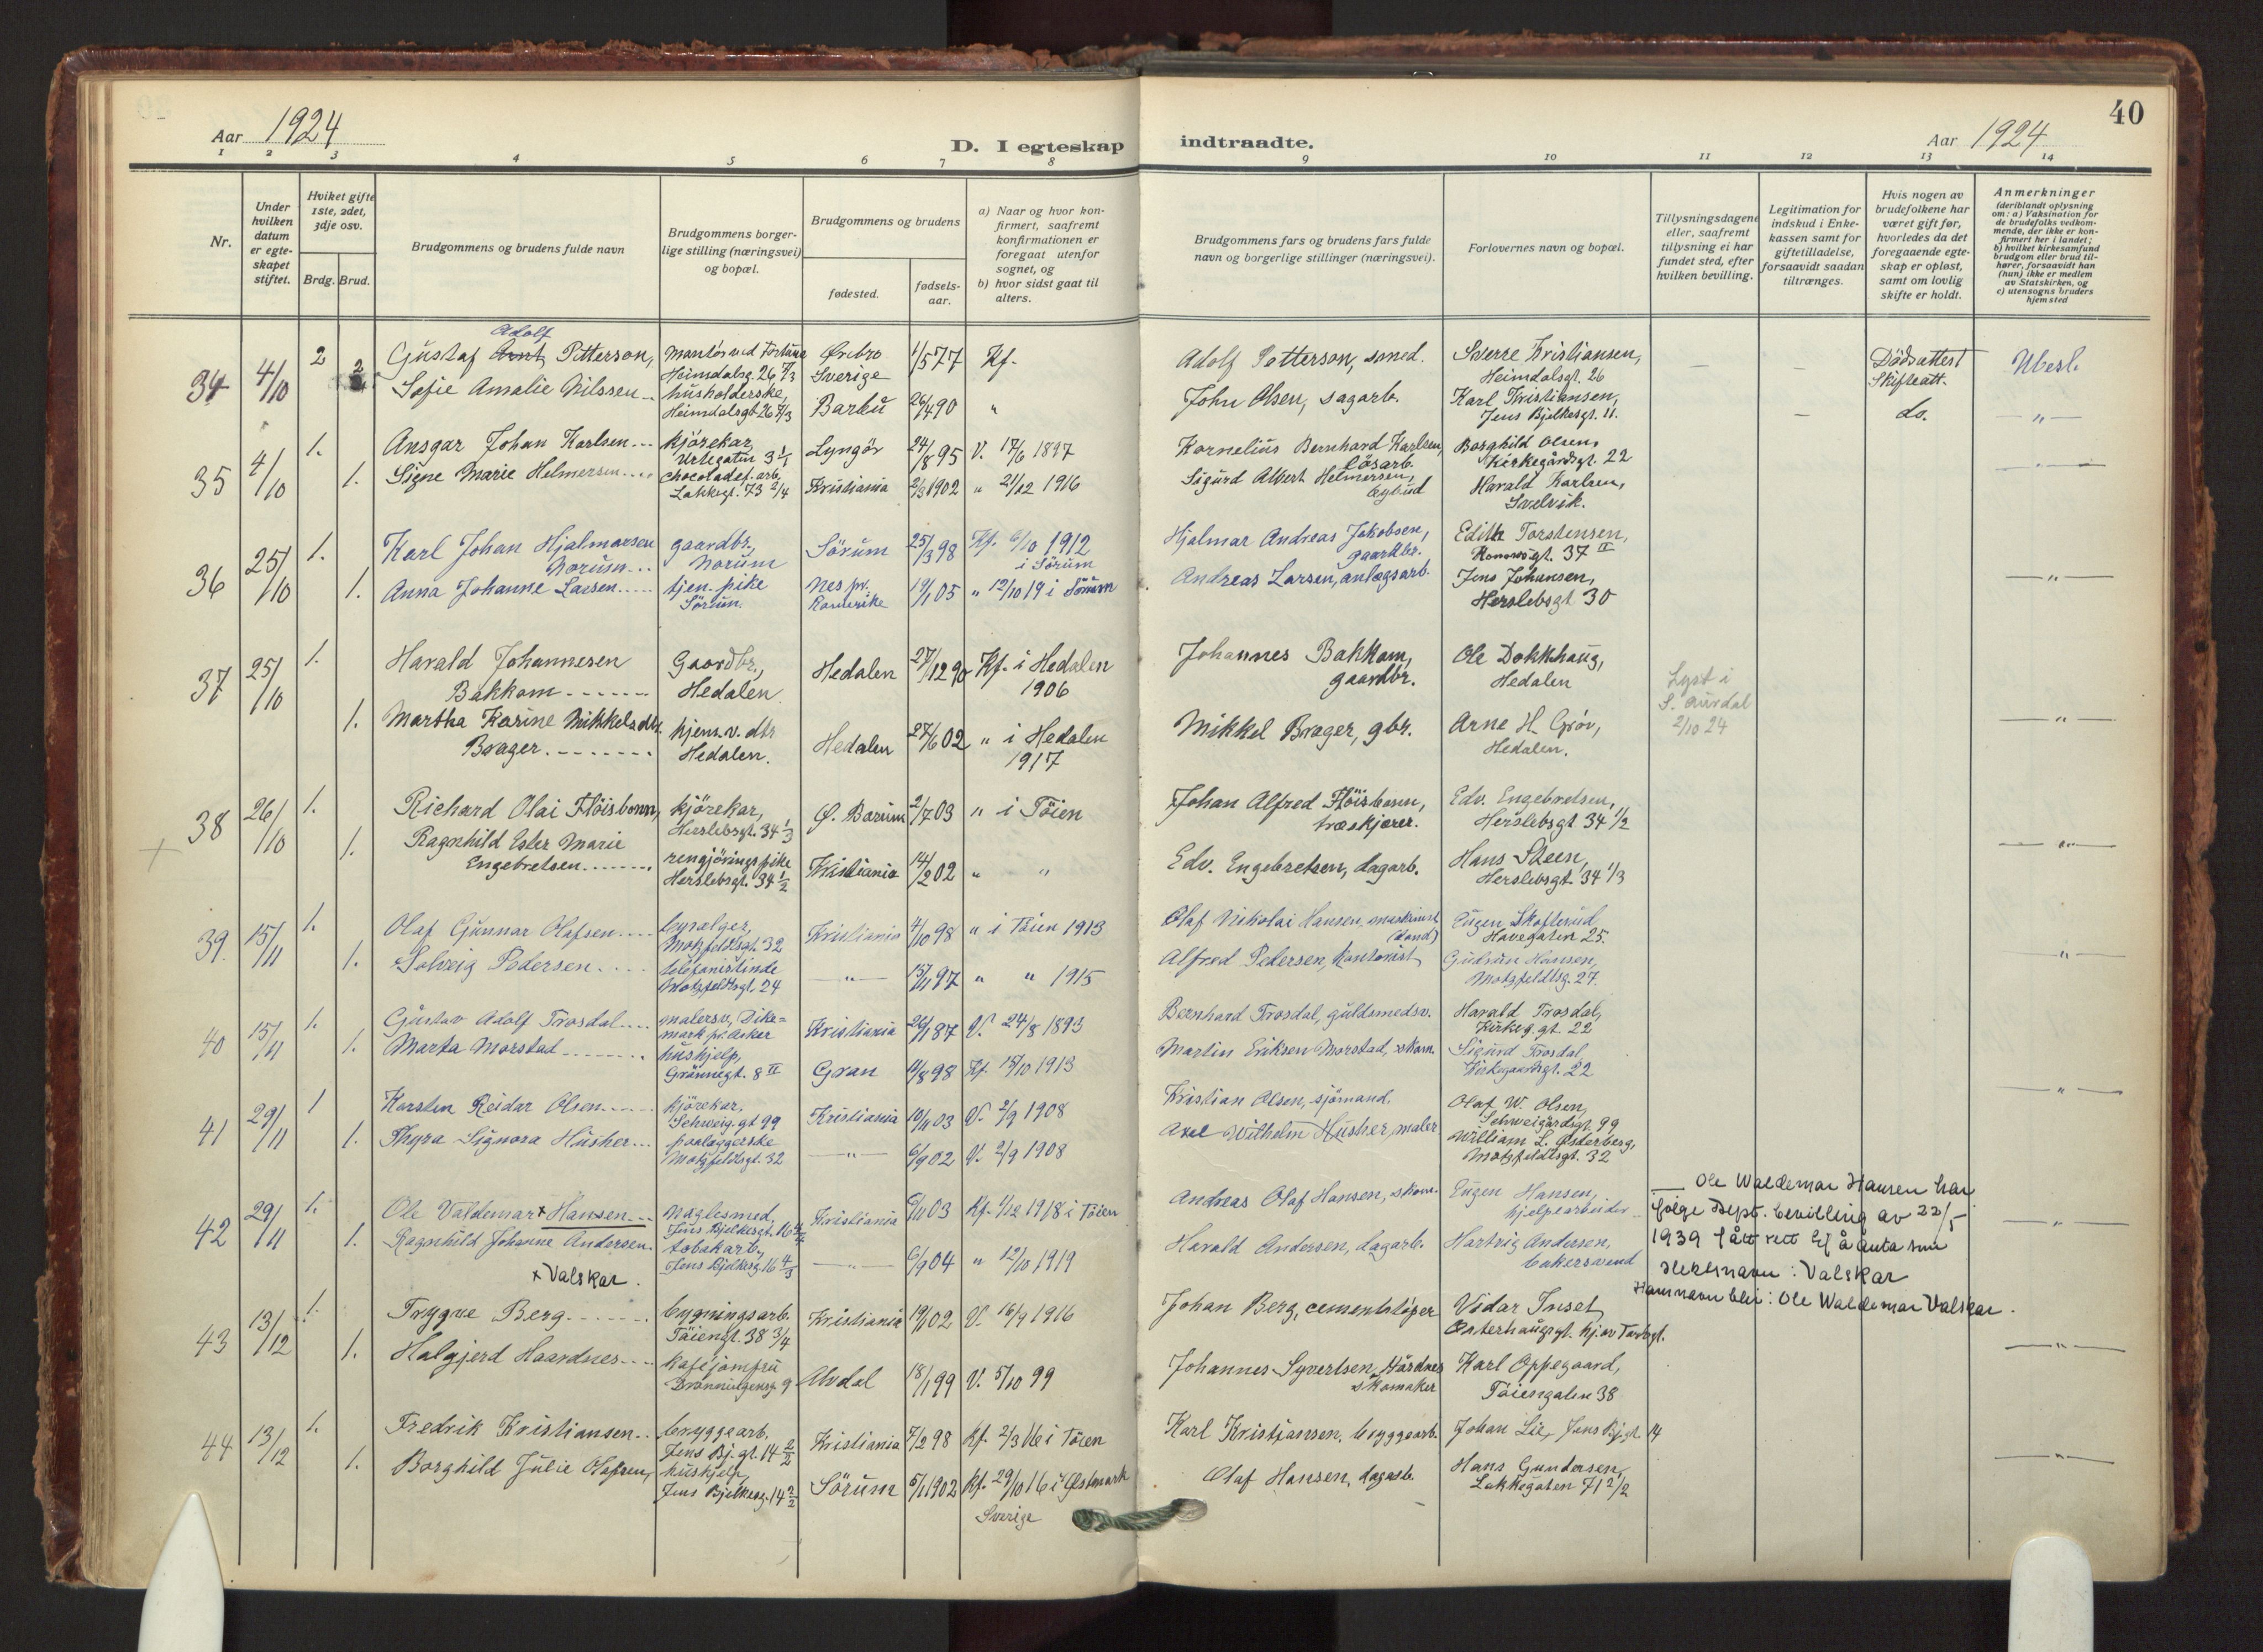 40
Aar 1924
D. I egteskap indtraadte.
Aar 1924
1 2 3 4 5 6 7 8 9 10 11 12 13 14
Nr.
Under hvilken datum er egteskapet stiftet.
Hviket gifte 1ste, 2det, 3dje osv.
Brdg. Brud.
Brudgommens og brudens fulde navn
Brudgommens borgerlige stilling (næringsvei) og bopæl.
Brudgommens og brudens
fødested.
fødselsaar.
a) Naar og hvor konfirmert, saafremt konfirmationen er foregaat utenfor sognet, og
b) hvor sidst gaat til alters.
Brudgommens fars og brudens fars fulde navn og borgerlige stillinger (næringsvei).
Forlovernes navn og bopæl.
Tillysningsdagene eller, saafremt tillysning ei har fundet sted, efter hvilken bevilling.
Legitimation for indskud i Enkekassen samt for giftetilladelse, forsaavidt saadan tiltrænges.
Hvis nogen av brudefolkene har været gift før, hvorledes da det foregaaende egteskap er opløst, samt om lovlig skifte er holdt.
Anmerkninger
(deriblandt oplysning om: a) Vaksination for de brudefolks vedkommende, der ikke er konfirmert her i landet; b) hvilket kirkesamfund brudgom eller brud tilhører, forsaavidt han (hun) ikke er medlem av Statskirken, og c) utensogns bruders hjemsted
34 4/10 2 Gustaf Adolf Petterson, Heimdalsg. 26 Örebro Sverige 1/5 77 Kf. Adolf Petterson, smed. Sverre Kristiansen, Heimdalsgt. 26 Dødsattest Skifteatt. Ubesl.
2 Sofie Amalie Nilssen husholderske, Heimdalsgt 26 Barbu 26/4 90 " John Olsen, sagarb. Karl Kristiansen, Jens Bjelkesgt. 11. do. "
35 4/10 1. Ansgar Johan Karlsen kjörekar, Urtegaten 3 Lyngör 24/8 95 V. 17/6 1897 Kornelius Bernhard Karlsen, lösarb. Borghild Olsen, Kirkegårdsgt. 22
1. Signe Marie Helmersen chocoladef. arb. Lakkegt. 73 2/4 Kristiania 2/3 1902 " 21/12 1916 Sigurd Albert Helmersen, bybud Harald Karlsen, Svelvik.
36 25/10 1. Karl Johan Hjalmarsen Norum gaardbr., Norum Sörum 25/3 98 Kf. 6/10 1912 i Sörum Hjalmar Andreas Jakobsen, gaardbr. Edith Torstensen, 37 II
1. Anna Johanne Larsen tjen. pike Sörum. Nes pr. Romerike 19/1 05 " 12/10 19 i Sörum Andreas Larsen, anlægsarb. Jens Johansen, Herslebsgt 30 "
37 25/10 1. Harald Johannesen Bakkom Gaardbr., Hedalen 27/12 90 Kf. i Hedalen 1906 Johannes Bakkom, gaardbr. Ole Dokkhaug, Hedalen Lyst i S. Aurdal 2/10 24
1. Martha Karine Mikkelsdtr. Brager hjem.v. dtr Hedalen. Hedalen 27/6 02 " i Hedalen 1917 Mikkel Brager, gbr. Arne H. Grøv, Hedalen. "
38 26/10 1. Richard Olai Flöisbonn, kjörekar, Herslebsgt. 34 1/3 Ø. Bærum 2/7 03 " i Töien Johan Alfred Flöisbonn, træskjærer. Edv. Engebretsen, Herslebsgt 34 1/2
1. Ragnhild Ester Marie Engebretsen rengjöringspike Herslebsgt. 34 1/2 Kristiania 14/2 02 " " Edv. Engebretsen, dagarb. Hans Skeen, Herslebsgt. 34 1/3 "
39. 15/11 1. Olaf Gunnar Olafsen Motzfeldtsgt. 32 Kristiania 4/10 98 " i Töien 1913 Olaf Nikolai Hansen, maskinist (död) Eugen Skofterud Havegaten 25.
1. Solveig Pedersen telefonistinde Motzfeldtsgt. 24 " 15/11 97 " " 1915 Alfred Pedersen, kontorist Gudrun Hansen, Motzfeldtsg. 27. "
40 15/11 1. Gustav Adolf Trosdal malersv, Dikemark pr. Asker Kristiania 26/1 87 V. 24/8 1893 Bernhard Trosdal, guldsmedsv. Harald Trosdal, Kirkeg. gt. 22
1. Marta Morstad hushjelp, Grönnegt. 8 II Gran 11/8 98 Kf. 15/10 1913 Martin Eriksen Morstad, skom. Sigurd Trosdal Kirkegaardsgt. 22 "
41 29/11 1 Karsten Reidar Olsen kjörekar, Schweig. gt 99 Kristiania 10/11 03 V. 2/9 1908 Kristian Olsen, sjömand. Olaf W. Olsen, Schweigårdsgt. 99
1. Thyra Signora Husher paalæggerske Motzfeldtsgt. 32 " 6/9 02 V. 2/9 1908 Axel Wilhelm Husher, maler William L. Østerberg, Motzfeldtsgt. 32
42 29/11 1. Ole Valdemar x Hansen naglesmed, Jens Bjelkesgt. 16 Kristiania 6/11 03 Kf. 1/12 1918 i Töien Andreas Olaf Hansen, skom. Eugen Hansen, hjelpearbeider
1. Ragnhild Johanne Andersen. tobakarb., Jens Bjelkesg 16 4/3 " 6/9 04 " 12/10 1919 Harald Andersen, dagarb. Hartvig Andersen, bakersvend "
x Valskar.
Ole Waldemar Hansen har
ifølge Dept. bevilling av 22/5
1939 fått rett til å anta som
slektsnavn: Valskar
Hans navn blir: Ole Waldemar Valskar.
43 13/12 1. Trygve Berg bygningsarb. Töiengt. 38 3/4 Kristiania 19/11 02 V. 16/9 1916 Johan Berg, cementstöper Vidar Inset Østerhaugsgt. hj. av
1. Halgjerd Haardnes Kaféjomfru 9 Alvdal 18/1 99 V. 5/10 99 Johannes Syvertsen Hårdnes skomaker Karl Oppegaard, Töiengaten 38 "
44 13/12 1. Fredrik Kristiansen bryggearb. Jens Bj. gt. 14 2/2 Kristiania 7/2 98 Kf. 2/3 16 i Töien Karl Kristiansen, bryggearb. Johan Lie, Jens Bj gt. 14
1. Borghild Julie Olafsen, hushjelp, Jens Bjelkesg. 14 2/2 Sörum 5/1 1902 Kf. 29/10 16 i Östmark Sverige Olaf Hansen, dagarb. Hans Gundersen, Lakkegaten 71 2/2 "